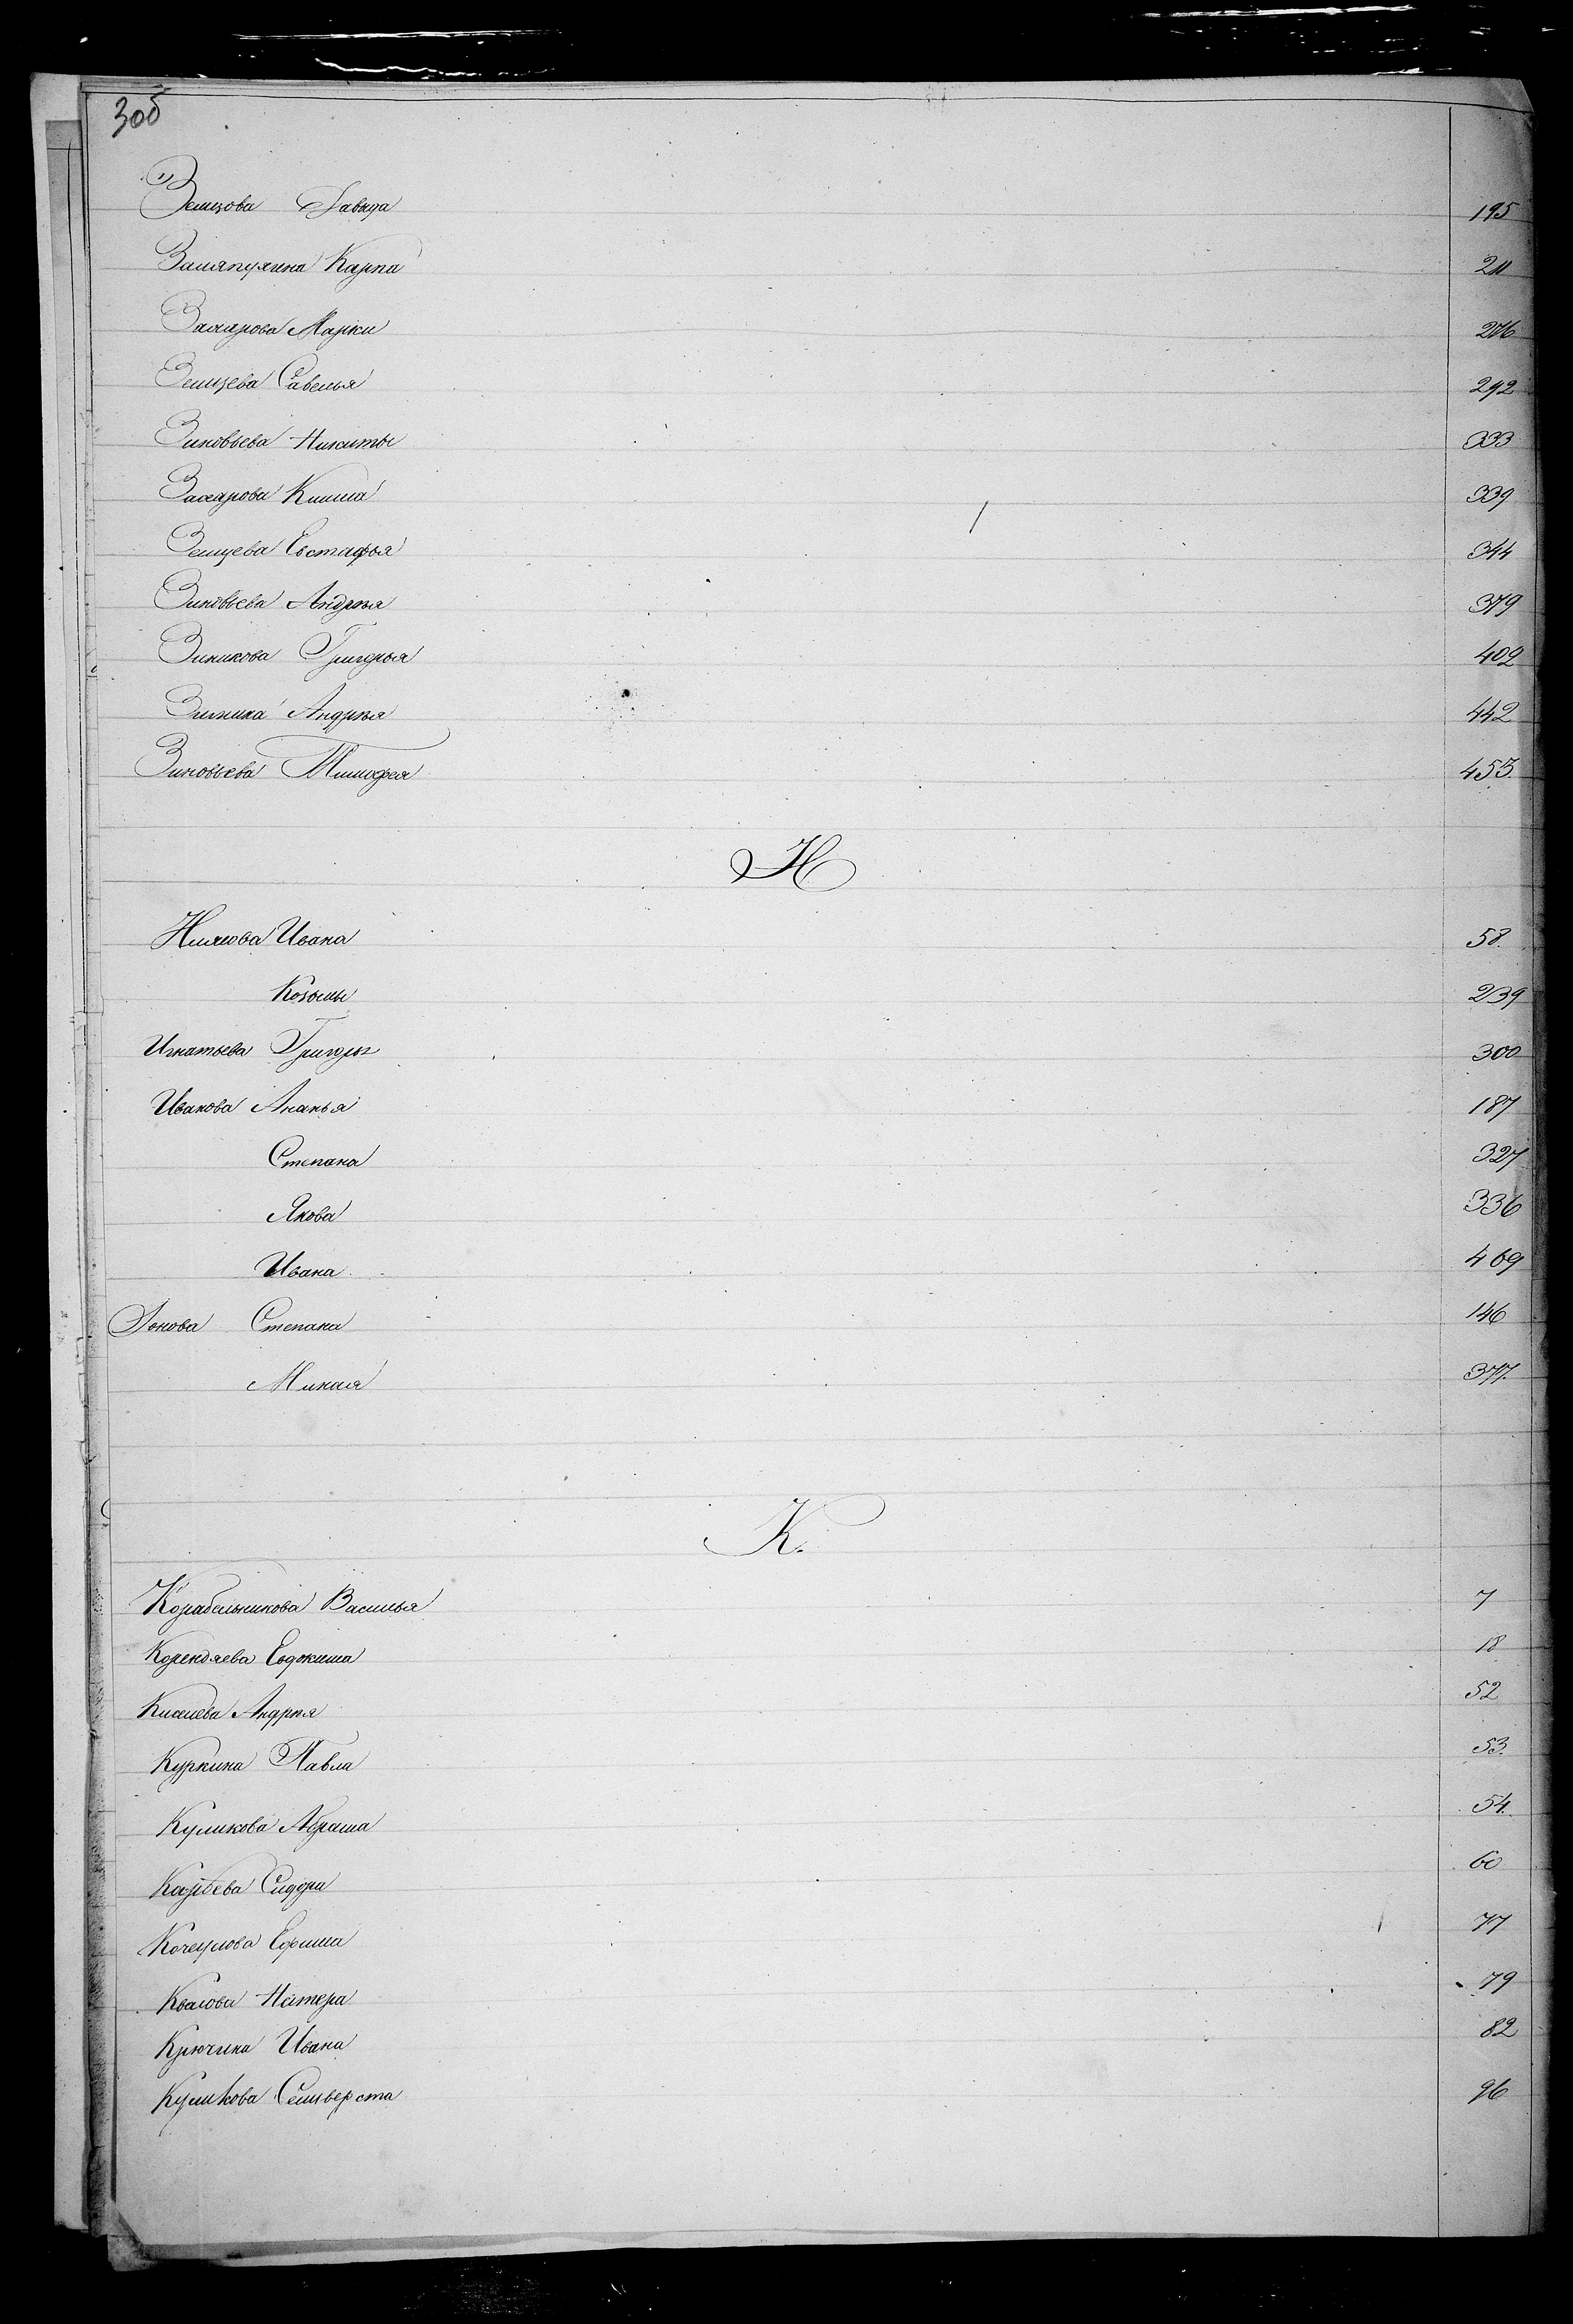 30б
Земцова Давыда 195
Карпа 211
Захарова Марки 276
Земцева Савелья 292
Зиновьева Никиты 333
Захарова Клима 339
Земцева Евстафья 344
Зиновьева Андрея 379
Зиникова Григорья 402
Зимина Андрея 442
Зиновьева Тимофея 453
И
Ивана 58.
Козьмы 239
Игнатьева Григорья 300
Иванова Ананья 187
Степана 327
Якова 336
Ивана 469
Іонова Степана 146
Миная 377.
К.
Корабельникова Василья 7
Корендяева Евдокима 18
Киселева Андрея 52
Куркина Павла 53.
Куликова Абрама 54.
Сидора 60
Ефима 77
Квасова Нестера 79
Крючина Ивана 82
Куликова Селиверста 96